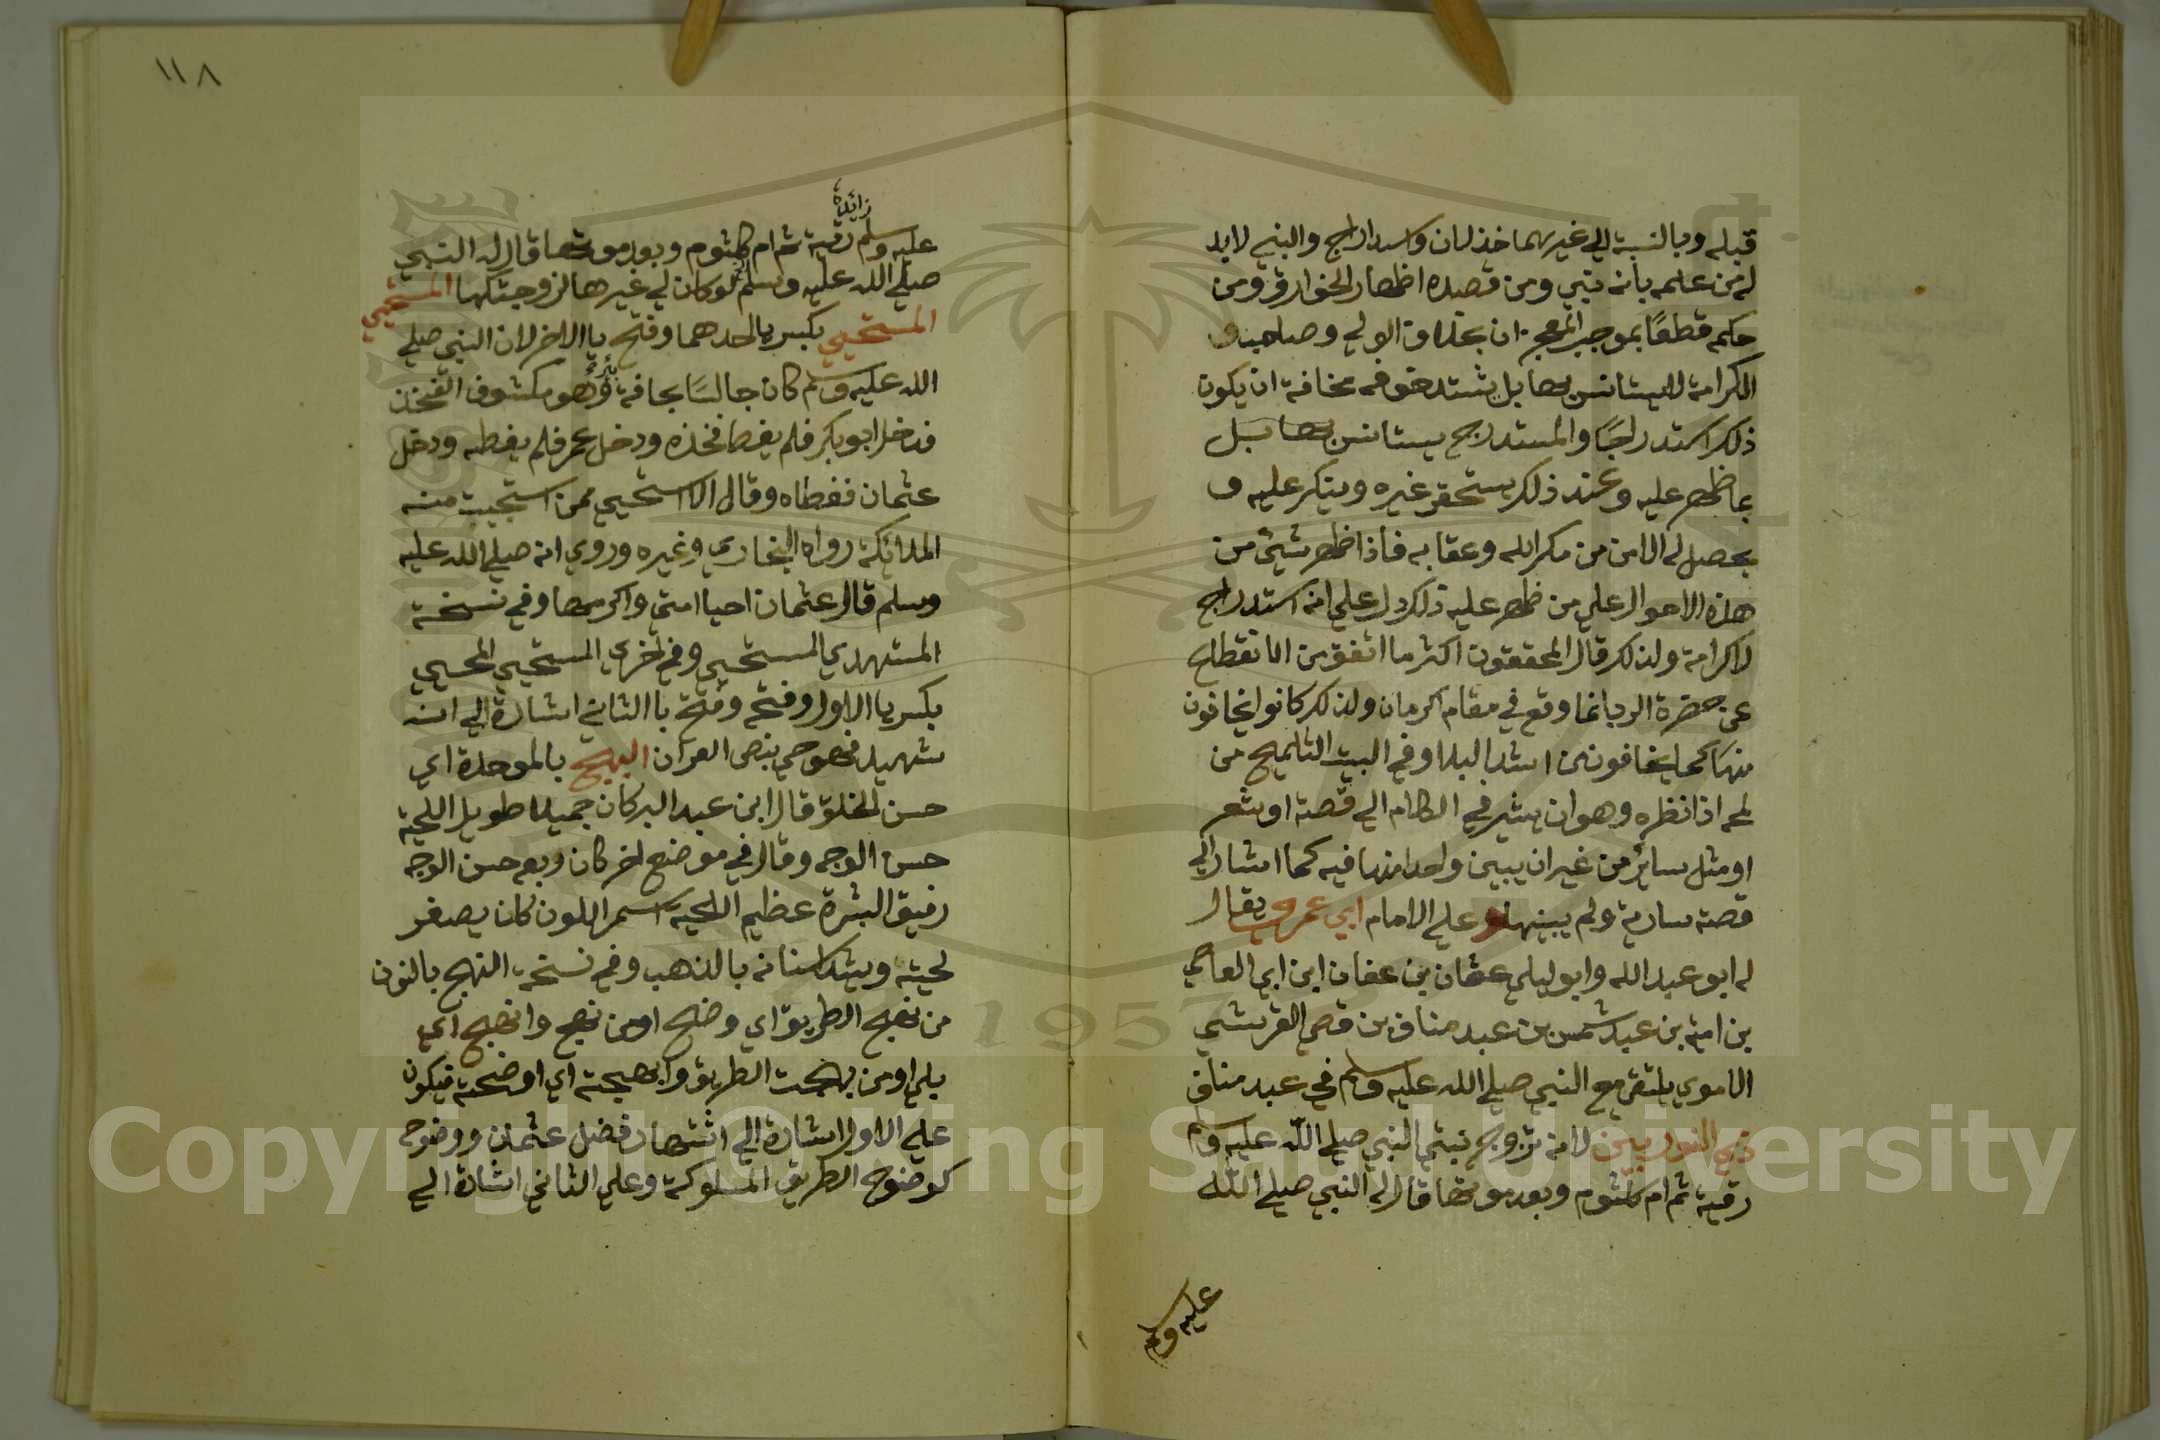 قبله وبالنسبة الي غيرهما خذلان واستدراج والنبي لابد
له من علمه بانه نبي ومن قصده اظهار الخوارق ومن
حكمه قطعًا بموجب المعجزة ان بخلاف الولي وصاحب
الكرامة لا يستانس بها بل يشتد خوفه مخافة ان يكون
ذلك استدراجًا والمستدرج يستانس بها بل
بما ظهر عليه وعند ذلك يستحقر غيره ويتكبر عليه و
يحصل له الامن من مكر الله وعقابه فاذا ظهر شيئ من
هذه الاحوال علي من ظهر عليه ذلك دل علي انه استدراج
لا كرامة ولذلك قال المحققون اكثر ما اتفق من الانقطاع
عن حضرة الرب انما وقع في مقام الكرمات ولذلك كانوا يخافون
منها كما يخافون من اشد البلا وفي البيت التلميح من
لمحه اذا نظره وهو ان يشير في الكلام الي قصة او شعر
او مثل ساير من غير ان يبين واحدا منها فيه كما اشار الي
قصة سارية ولم يبينها و علي الامام ابي عمرو يقال
له ابو عبد الله وابو ليلي عثمان بن عفان ابن ابي العاصي
بن امية بن عبد شمس بن عبد مناف بن قصي القرشي
الاموي يلتقي مع النبي صلي الله عليه وسلم في عبد مناف
ذي النورين لانه تزوج بنتي النبي صلي الله عليه وسلم
رقية ثم ام كلثوم وبعد موتها قال له النبي صلي الله
عليه وسلم
١١٨
زائدة
عليه وسلم رقية ثم ام كلثوم وبعد موتها قال له النبي
صلي الله عليه وسلم لو كان لي غيرها لزوجتكها المستحيي
المستحيي بكسر يا احدهما وفتح يا الاخر لان النبي صلي
الله عليه وسلم كان جالسًا بحافة بئر وهو مكشوف الفخذ
فدخل ابو بكر فلم يغط فخذه ودخل عمر فلم يغطه ودخل
عثمان فغطاه وقال الا استحيي ممن استحيت منه
الملائكة رواه البخاري وغيره وروي انه صلي الله عليه
وسلم قال عثمان احيا امتي واكرمها وفي نسخة
المستهدي المستحيي وفي اخري المستحيي المحيي
بكسر يا الاول وفتحه وفتح يا الثاني اشارة الي انه
شهيد فهو حي بنص القران البهج بالموحدة اي
حسن الخلق قال ابن عبد البر كان جميلا طويل اللحية
حسن الوجه وقال في موضع اخر كان ربعه حسن الوجه
رقيق البشرة عظيم اللحية اسمر اللون كان يصفر
لحيته ويشد اسنانه بالذهب وفي نسخة النهج بالنون
من نهج الطريق اي وضح او من نهج وانهج اي
بلي او من نهجت الطريق وانهجته اي اوضحته فيكون
علي الاول اشارة الي اشتهار فضل عثمان ووضوح
كوضوح الطريق المسلوكة وعلي الثاني اشارة الي